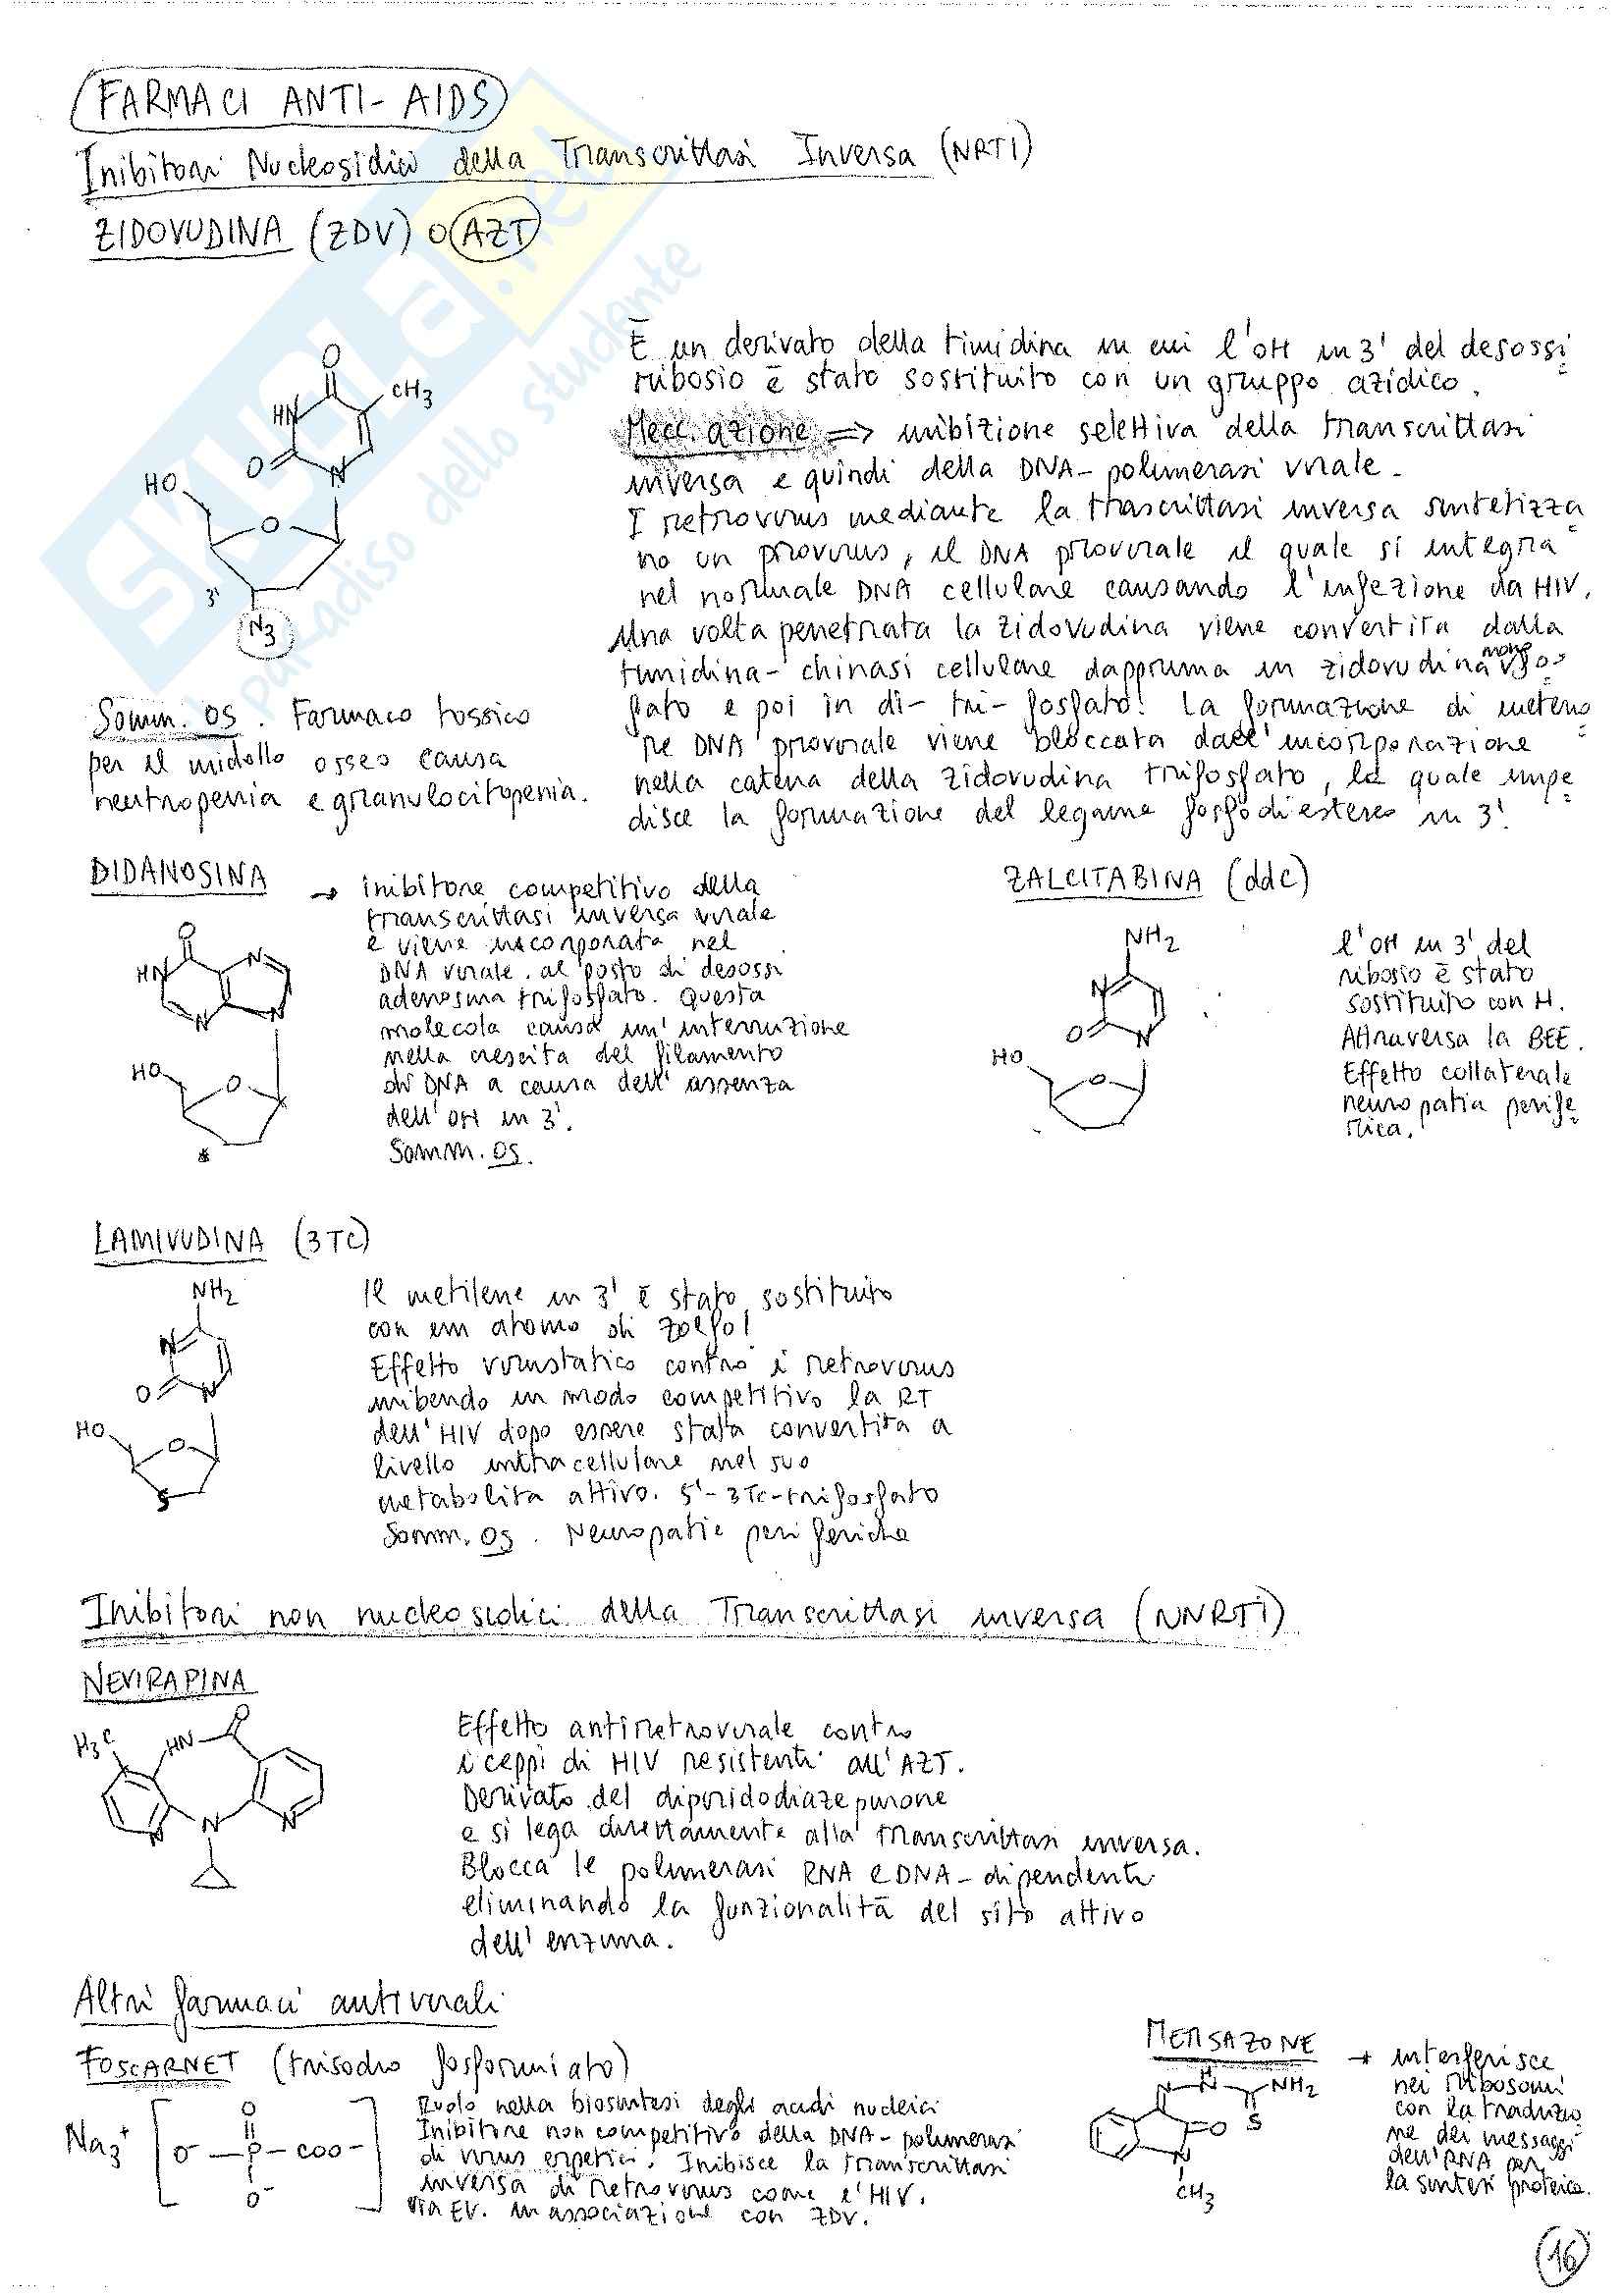 FARMACI ANTI-AIDS
Inibitori Nucleosidici della Transcrittasi Inversa (NRTI)
ZIDOVUDINA (ZDV) O AZT
SKUOLA.net
paradiso dello studente
O
HN
CH3
O
N
HO
O
3'
N3
È un derivato della timidina in cui l'OH in 3' del desossi
ribosio è stato sostituito con un gruppo azidico.
Mecc. azione => inibizione selettiva della transcrittasi
inversa e quindi della DNA-polimerasi virale.
I retrovirus mediante la trascrittasi inversa sintetizza
no un provirus, il DNA provirale il quale si integra
nel normale DNA cellulare causando l'infezione da HIV.
Una volta penetrata la zidovudina viene convertita dalla
timidina-chinasi cellulare dapprima in zidovudina mono fos-
fato e poi in di- tri- fosfato! La formazione di ulterio
re DNA provirale viene bloccata dall'incorporazione
nella catena della zidovudina trifosfato, la quale impe
disce la formazione del legame fosfodiestereo in 3'.
Somm. OS. Farmaco tossico
per il midollo osseo causa
neutropenia e granulocitopenia.
DIDANOSINA
O
HN
N
N
N
HO
O
*
→ inibitore competitivo della
transcrittasi inversa virale
e viene incorporata nel
DNA virale. al posto di desossi
adenosina trifosfato. Questa
molecola causa un'interruzione
nella crescita del filamento
di DNA a causa dell'assenza
dell'OH in 3'.
Somm. OS.
ZALCITABINA (ddC)
NH2
N
O
N
HO
O
l'OH in 3' del
ribosio è stato
sostituito con H.
Attraversa la BEE.
Effetto collaterale
neuropatia perife
rica.
LAMIVUDINA (3TC)
NH2
N
O
N
HO
O
S
Il metilene in 3' è stato sostituito
con un atomo di zolfo!
Effetto virustatico contro i retrovirus
inibendo in modo competitivo la RT
dell'HIV dopo essere stata convertita a
livello intracellulare nel suo
metabolita attivo. 5'-3TC-trifosfato
Somm. OS. Neuropatie periferiche
Inibitori non nucleosidici della Transcrittasi inversa (NNRTI)
NEVIRAPINA
O
H3C
HN
N
N
N
Effetto antiretrovirale contro
i ceppi di HIV resistenti all'AZT.
Derivato del dipiridodiazepinone
e si lega direttamente alla transcrittasi inversa.
Blocca le polimerasi RNA e DNA-dipendenti
eliminando la funzionalità del sito attivo
dell'enzima.
Altri farmaci antivirali
FOSCARNET (trisodio fosformiato)
Na3+ [O- -P- COO-]
O
O-
Ruolo nella biosintesi degli acidi nucleici
Inibitore non competitivo della DNA-polimerasi
di virus erpetici. Inibisce la transcrittasi
inversa di retrovirus come l'HIV.
via EV. in associazione con ZDV.
METISAZONE
N
H
N
NH2
S
O
N
CH3
→ interferisce
nei ribosomi
con la traduzio
ne dei messaggi
dell'RNA per
la sintesi proteica.
16